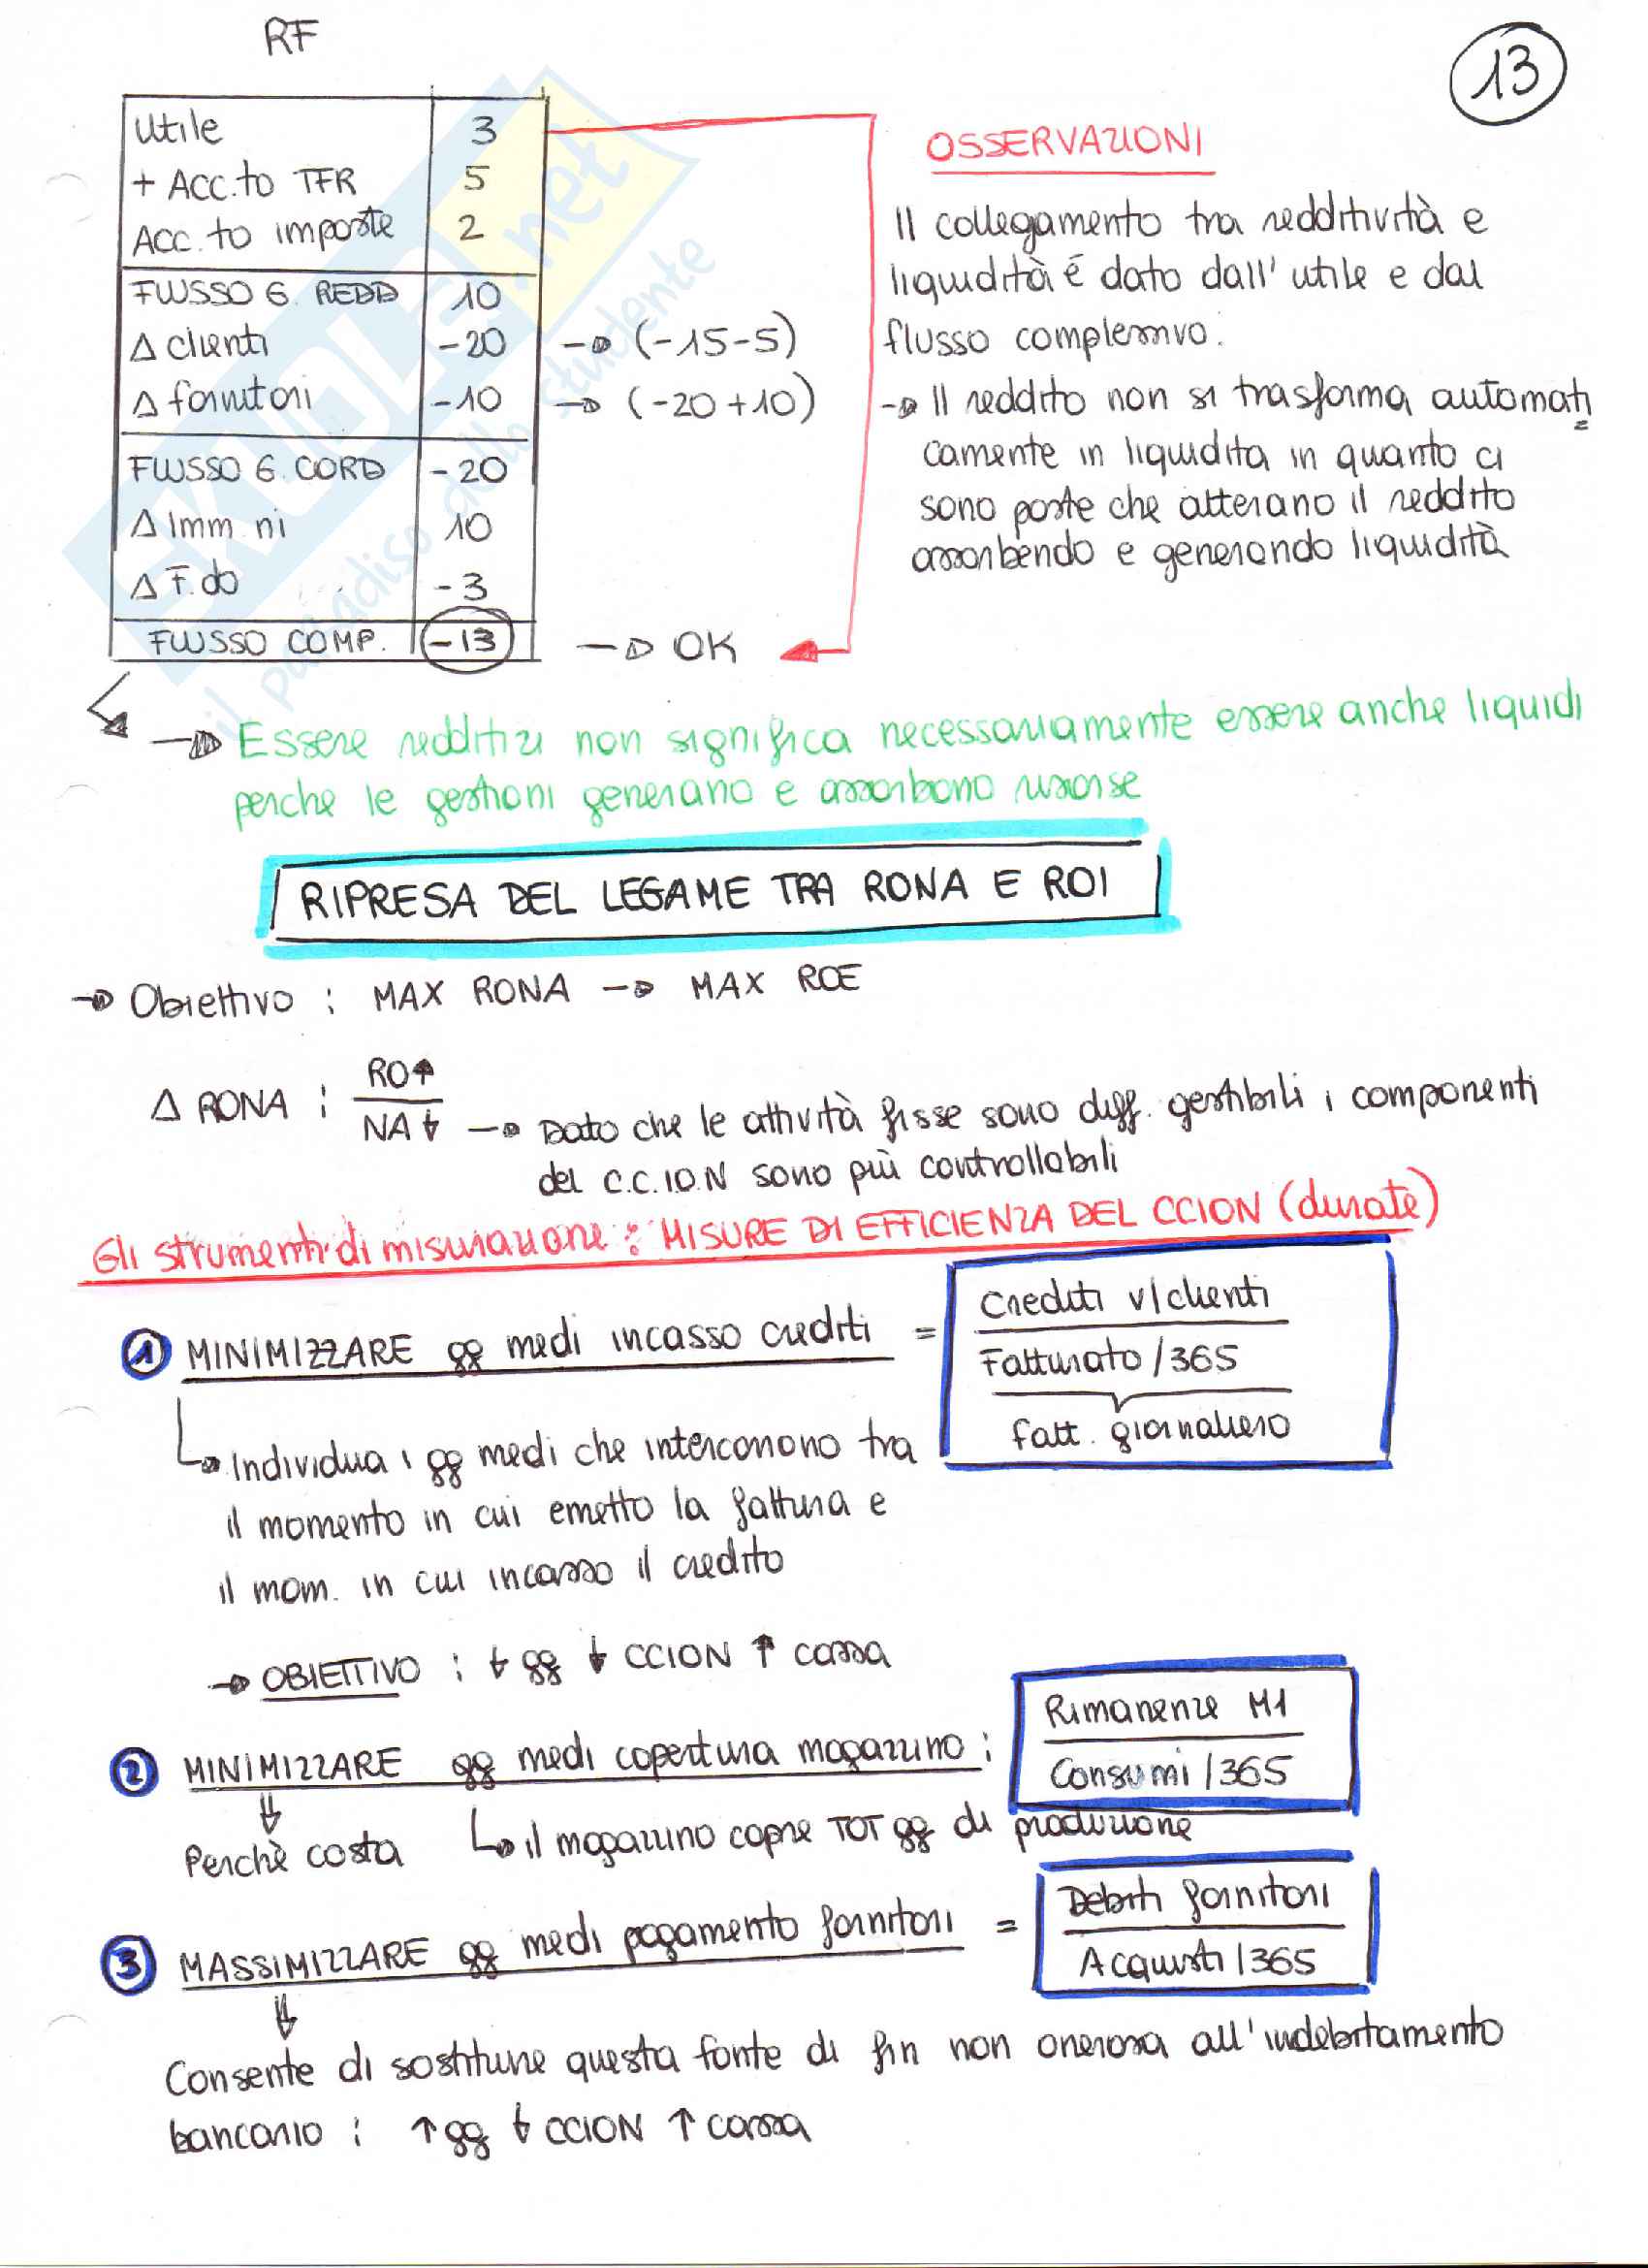 RF
13
Utile 3
+ Acc.to TFR 5
Acc.to imposte 2
FLUSSO G. REDD 10
Δ clienti -20 → (-15-5)
Δ fornitori -10 → (-20+10)
FLUSSO G. CORR -20
Δ Imm.ni 10
Δ F.do -3
FLUSSO COMP. -13 → OK
OSSERVAZIONI
Il collegamento tra redditività e
liquidità é dato dall'utile e dal
flusso complessivo.
→ Il reddito non si trasforma automati
camente in liquidita in quanto ci
sono poste che alterano il reddito
assorbendo e generando liquidità
→ Essere redditizi non significa necessariamente essere anche liquidi
perche le gestioni generano e assorbono risorse
RIPRESA DEL LEGAME TRA RONA E ROI
→ Obiettivo : MAX RONA → MAX ROE
Δ RONA : RO↑
NA↓ → Dato che le attività fisse sono diff. gestibili i componenti
del C.C.I.O.N sono più controllabili
Gli strumenti di misurazione : MISURE DI EFFICIENZA DEL CCION (durate)
1 MINIMIZZARE gg medi incasso crediti = Crediti v/clienti
Fatturato /365
fatt. giornaliero
Individua i gg medi che intercorrono tra
il momento in cui emetto la fattura e
il mom. in cui incasso il credito
→ OBIETTIVO : ↓ gg ↓ CCION ↑ cassa
2 MINIMIZZARE gg medi copertura magazzino : Rimanenze M1
Consumi /365
Perchè costa
il magazzino copre TOT gg di produzione
3 MASSIMIZZARE gg medi pagamento fornitori = Debiti fornitori
Acquisti /365
Consente di sostituire questa fonte di fin non onerosa all'indebitamento
bancario : ↑ gg ↓ CCION ↑ cassa
SKUOLA.net
il paradiso dello studente